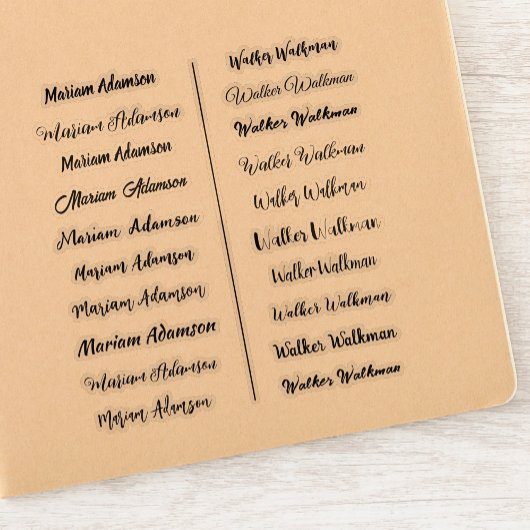 Mariam Adamson
Mariam Adamson
Mariam Adamson
Mariam Adamson
Mariam Adamson
Mariam Adamson
Mariam Adamson
Mariam Adamson
Mariam Adamson
Mariam Adamson
Walker Walkman
Walker Walkman
Walker Walkman
Walker Walkman
Walker Walkman
Walker Walkman
Walker Walkman
Walker Walkman
Walker Walkman
Walker Walkman